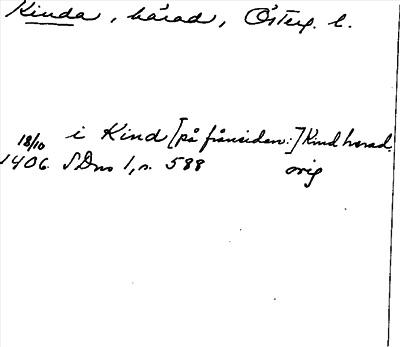 Kinda, härad, Österg. l.
i Kind [på frånsidan:] Kind herad.
18/10
1406. SDns 1, s. 588 orig